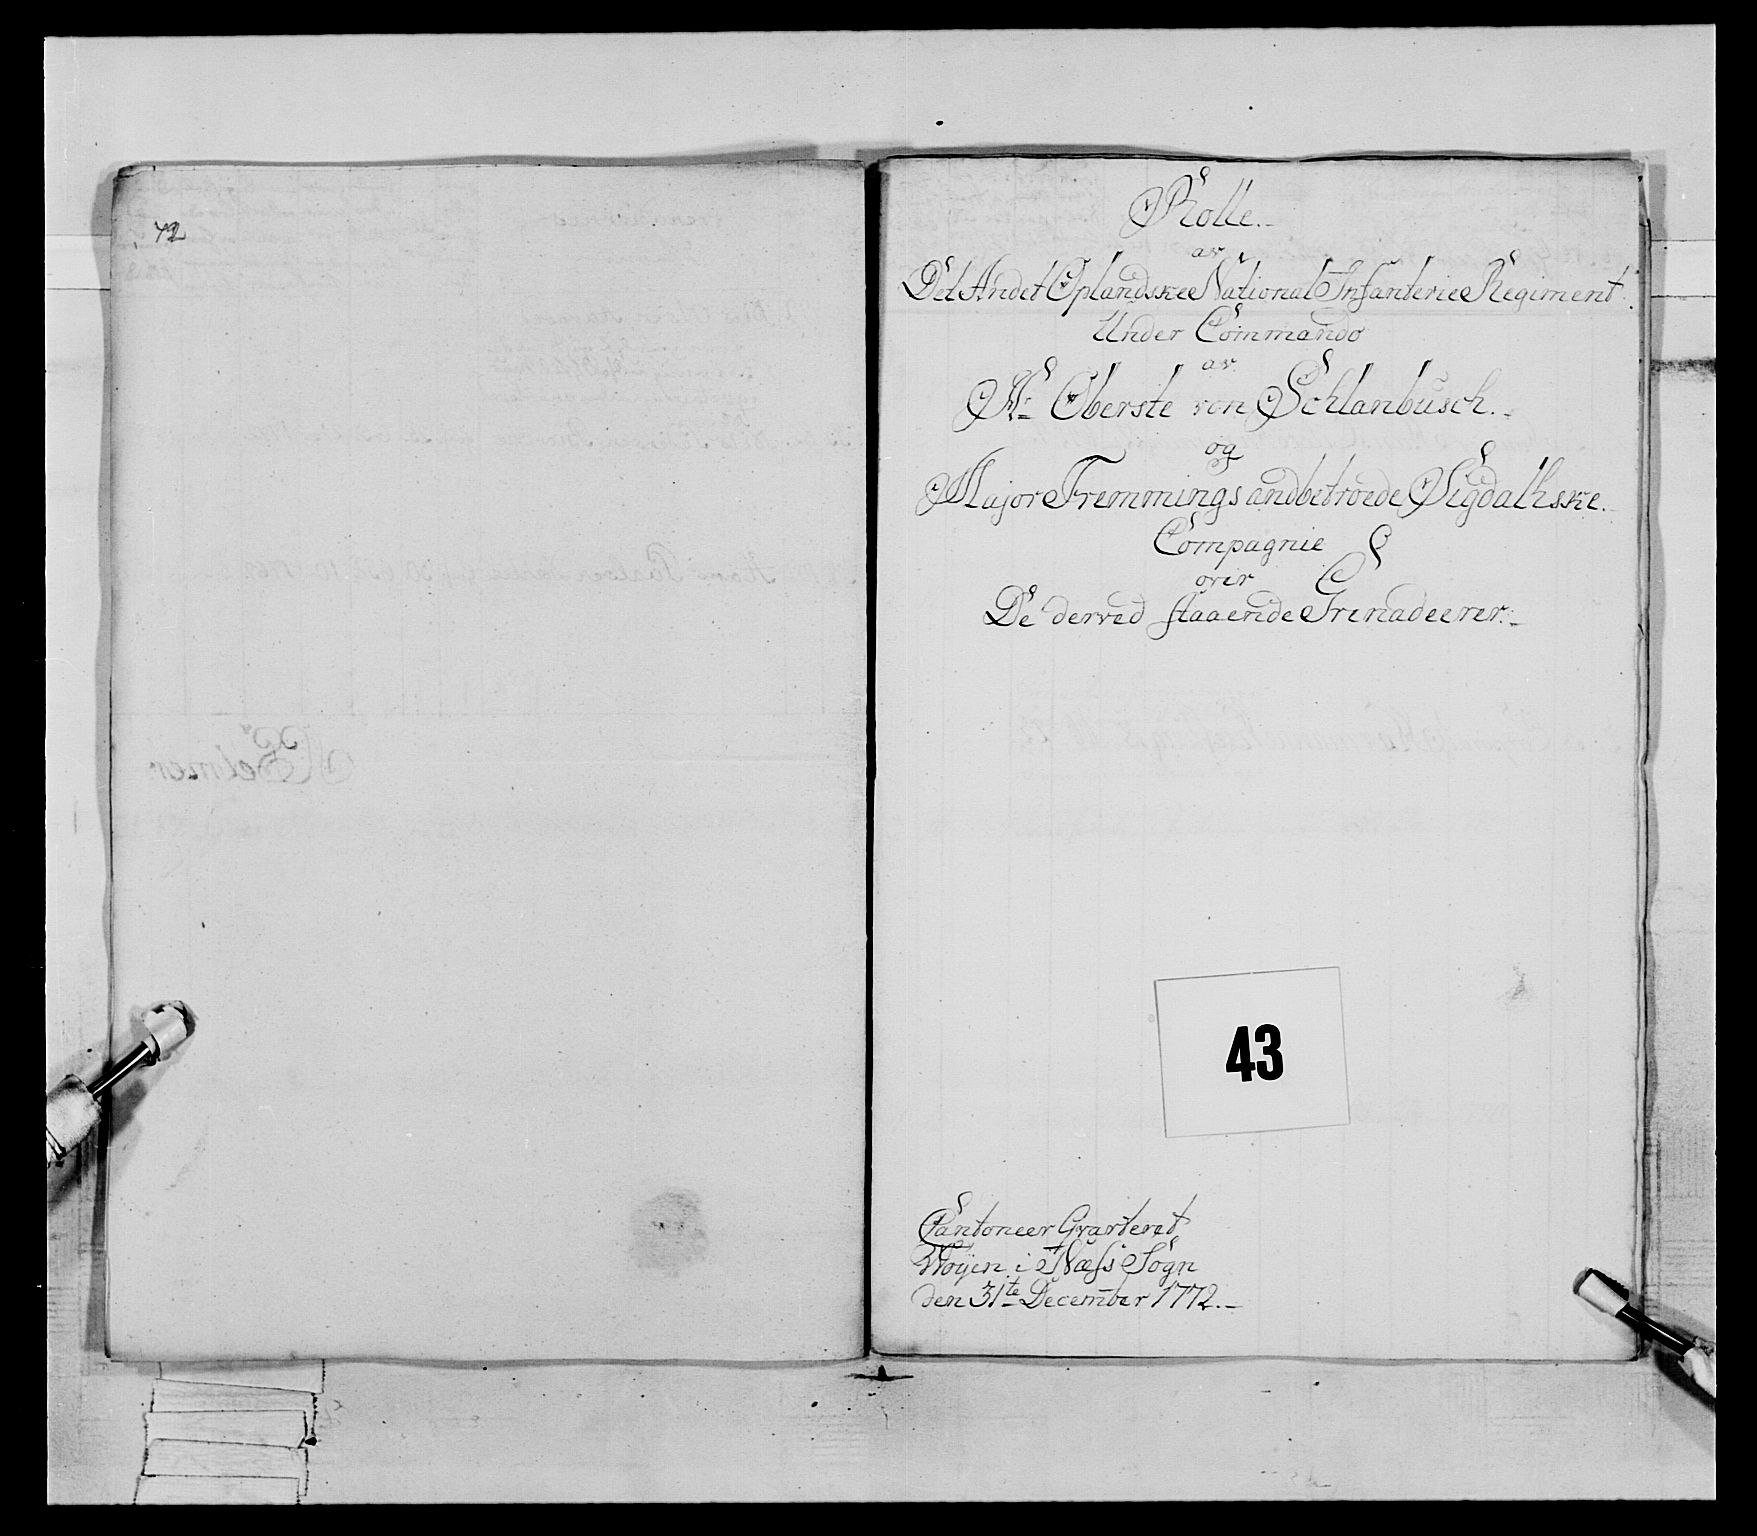 42
Rolle.
av
Det Andet Oplandske National Infanterie Regiment.
Under Commando
av
Hr Oberste von Schlanbusch.
og
Major Fremmings andbetroede Sigdalske.
Compagnie
over
De derved staaende Grenadeerer.
43
Cantoneer Qvarteret
Woyen i Næss Sogn
den 31te December 1772.